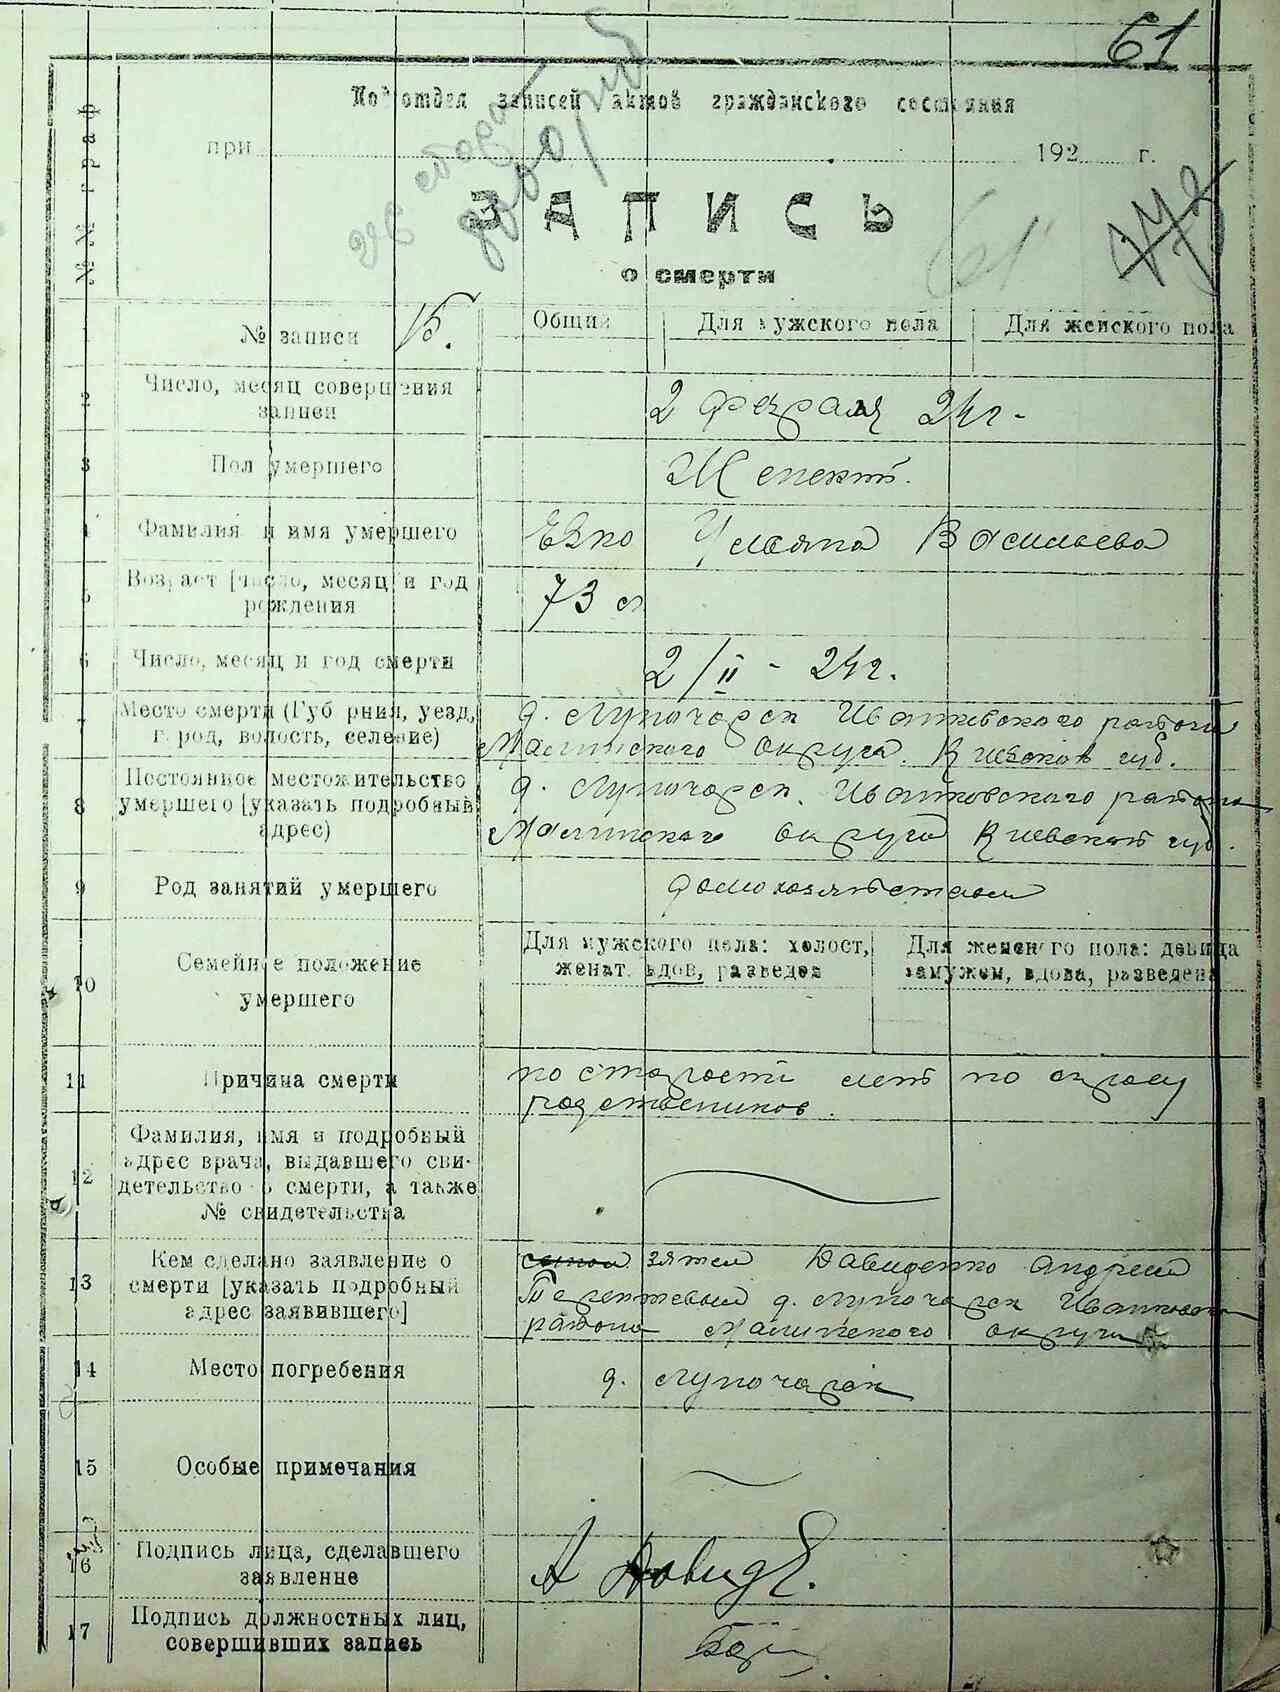 61
Подотдел записей актов гражданского состояния
при 192 г.
ЗАПИСЬ
61
473
о смерти
№№ граф
№ записи 15.
Общий
Для мужского пола
Для женского пола
2 Число, месяц совершения записи
2 февраля 24 г.
3 Пол умершего
Женский.
4 Фамилия и имя умершего
Ульяна Васильева
5 Возраст [число, месяц и год рождения
73 л
6 Число, месяц и год смерти
2/II - 24 г.
7 Место смерти (Губерния, уезд, город, волость, селение)
д. Луночарск Иванковского района
Малинского округа. Киевской губ.
8 Постоянное местожительство умершего [указать подробный адрес)
д. Луночарск. Иванковского района
Малинского округа Киевской губ.
9 Род занятий умершего
домохозяйством
10 Семейное положение умершего
Для мужского пола: холост, женат, вдов, разведен
Для женского пола: девица замужем, вдова, разведена
11 Причина смерти
по старости лет по опросу
родственников.
12 Фамилия, имя и подробный адрес врача, выдавшего свидетельство о смерти, а также № свидетельства
13 Кем сделано заявление о смерти [указать подробный адрес заявившего]
сыном зятем Давиденко Андреем
Терентьевым д. Луночарск Иванковск
района Малинского округа
14 Место погребения
д. Луночарск
15 Особые примечания
16 Подпись лица, сделавшего заявление
А Давид
17 Подпись должностных лиц, совершивших запись